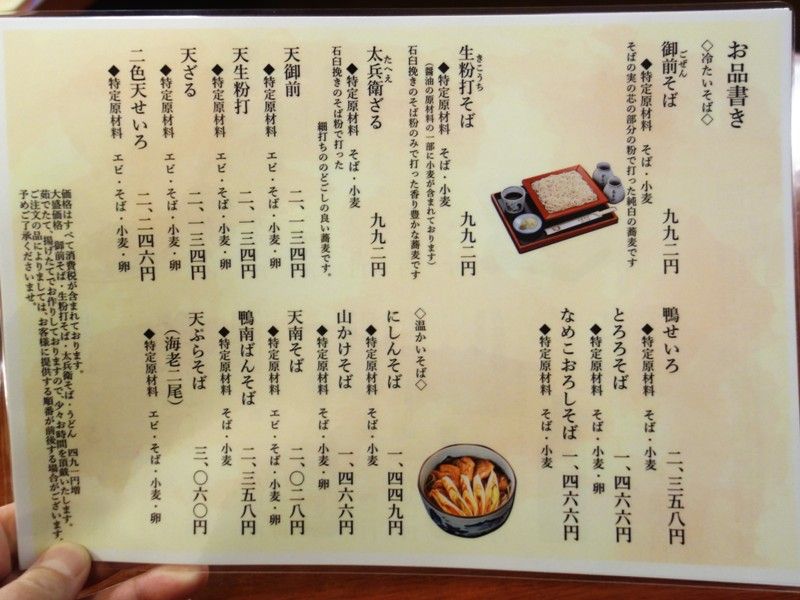 お品書き
◇冷たいそば◇
御前そば 九九二円
ごぜん
◆特定原材料 そば・小麦
そばの実の芯の部分の粉で打った純白の蕎麦です
生粉打そば 九九二円
きこうち
◆特定原材料 そば・小麦
(醤油の原材料の一部に小麦が含まれております)
石臼挽きのそば粉のみで打った香り豊かな蕎麦です
太兵衛ざる 九九二円
たへえ
◆特定原材料 そば・小麦
石臼挽きのそば粉で打った
細打ちののどごしの良い蕎麦です。
天御前 二、一三四円
◆特定原材料 エビ・そば・小麦・卵
天生粉打 二、一三四円
◆特定原材料 エビ・そば・小麦・卵
天ざる 二、一三四円
◆特定原材料 エビ・そば・小麦・卵
二色天せいろ 二、二四六円
◆特定原材料 エビ・そば・小麦・卵
鴨せいろ 二、三五八円
◆特定原材料 そば・小麦
とろろそば 一、四六六円
◆特定原材料 そば・小麦・卵
なめこおろしそば 一、四六六円
◆特定原材料 そば・小麦
◇温かいそば◇
にしんそば 一、四四九円
◆特定原材料 そば・小麦
山かけそば 一、四六六円
◆特定原材料 そば・小麦・卵
天南そば 二、〇二八円
◆特定原材料 エビ・そば・小麦・卵
鴨南ばんそば 二、三五八円
◆特定原材料 そば・小麦
天ぷらそば 三、〇六〇円
(海老二尾)
◆特定原材料 エビ・そば・小麦・卵
価格はすべて消費税が含まれております。
大盛価格 御前そば・生粉打そば・太兵衛そば・うどん 四九一円増
茹でたて、揚げたてでお作りしておりますので、少々お時間を頂戴いたします。
ご注文の品によりましては、お客様に提供する順番が前後する場合がございます。
予めご了承くださいませ。